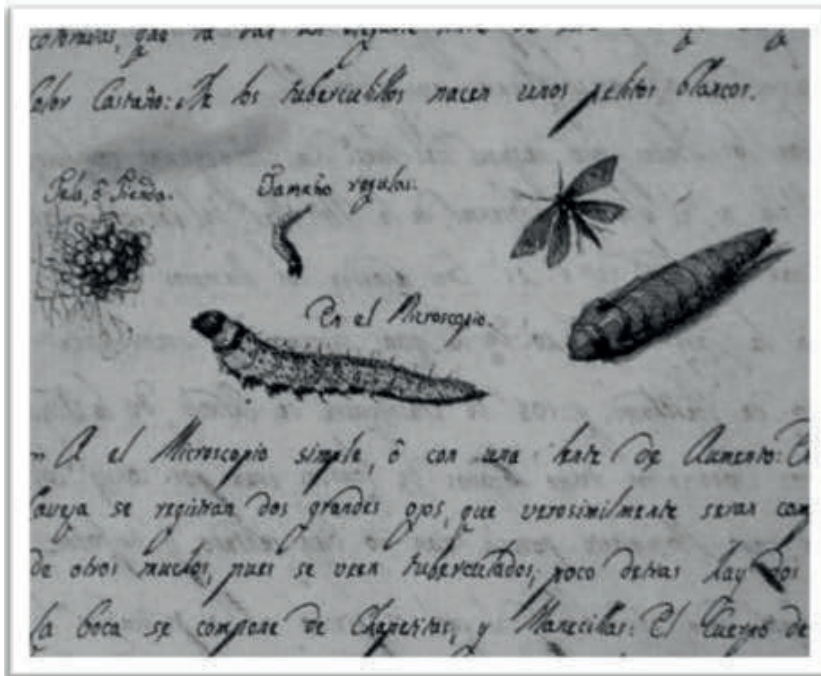 color Castaño: de los tuberculillos nacen unos pelitos blancos.
Tela, ô Tienda.
Tamaño regular.
En el Microscopio.
A el Microscopio simple, ô con una lente de Aumento:
se registran dos grandes ojos, que verosimilmente seran com
de otros muchos, pues se veen tuberculados; poco detras hay dos
la boca se compone de Chapetitas, y Manecillas: El Cuerpo de